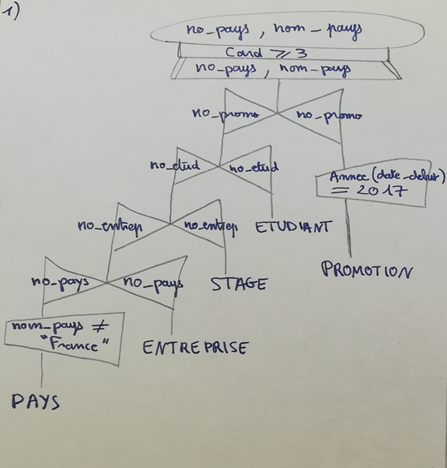 1)
no_pays, nom_pays
Card ⩾ 3
no_pays, nom_pays
no_promo no_promo
no_etud no_etud
Annee (date_debut)
= 2017
no_entrep no_entrep
ETUDIANT
PROMOTION
no_pays no_pays
STAGE
nom_pays ≠
"France"
ENTREPRISE
PAYS